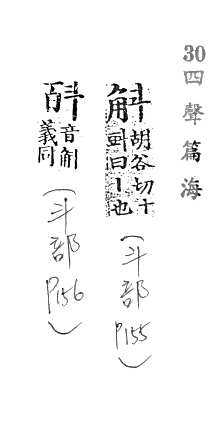 30四聲篇海
斛
胡谷切十
曰丨也
(斗部P155)
音斛
義同
(斗部P156)